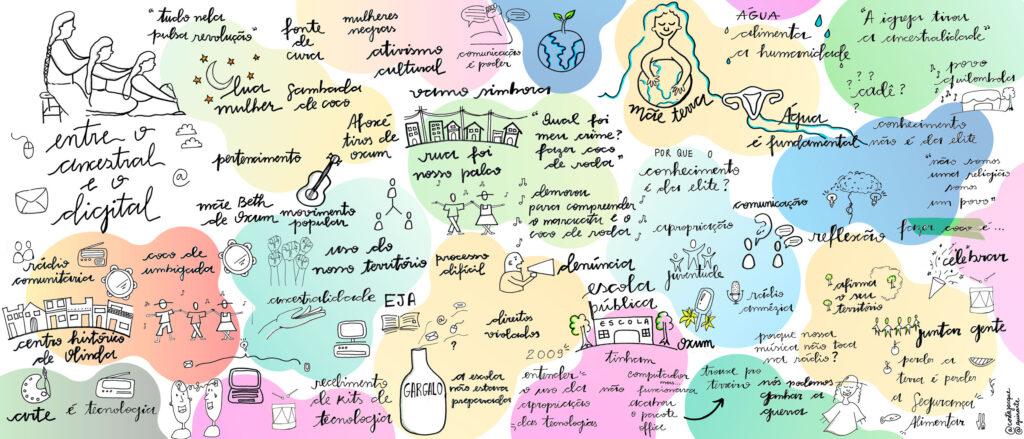 "tudo nela
pulsa revolução"
fonte
de
cura
mulheres
negras
ativismo
cultural
comunicação
é poder
lua
mulher
sambada
de coco
vamo simbora
mãe terra
ÁGUA
alimenta
a humanidade
Água
é fundamental
"A igreja tirou
a ancestralidade"
? ? ?
cadê?
povo
quilombola
entre o
ancestral
e o
digital
@
pertencimento
Afoxé
tiros de
oxum
rua foi
nosso palco
"Qual foi
meu crime?
fazer coco
de roda"
POR QUE O
conhecimento
é da elite?
conhecimento
não é da elite
"não somos
uma religião
somos
um povo"
mãe Beth
de oxum
movimento
popular
demorou
para compreender
o maracatu e o
coco de roda
apropriação
comunicação
?
reflexão
fazer coco é...
celebrar
rádio
comunitária
coco de
umbigada
uso do
nosso território
processo
difícil
denúncia
juventude
rádio
amnézia
oxum
afirma
o seu
território
juntar gente
ancestralidade
EJA
direitos
violados
?
escola
pública
ESCOLA
centro histórico
de Olinda
2009
tinham
computador
mas
funcionava
acabou o
pacote
office
porque nossa
música não toca
na rádio?
perder a
terra é perder
a segurança
alimentar
arte
é tecnologia
recebimento
de kits de
tecnologia
GARGALO
a escola
não estava
preparada
entender
o uso da
apropriação
das tecnologias
trouxe pro
terreiro
nós podemos
ganhar a
guerra